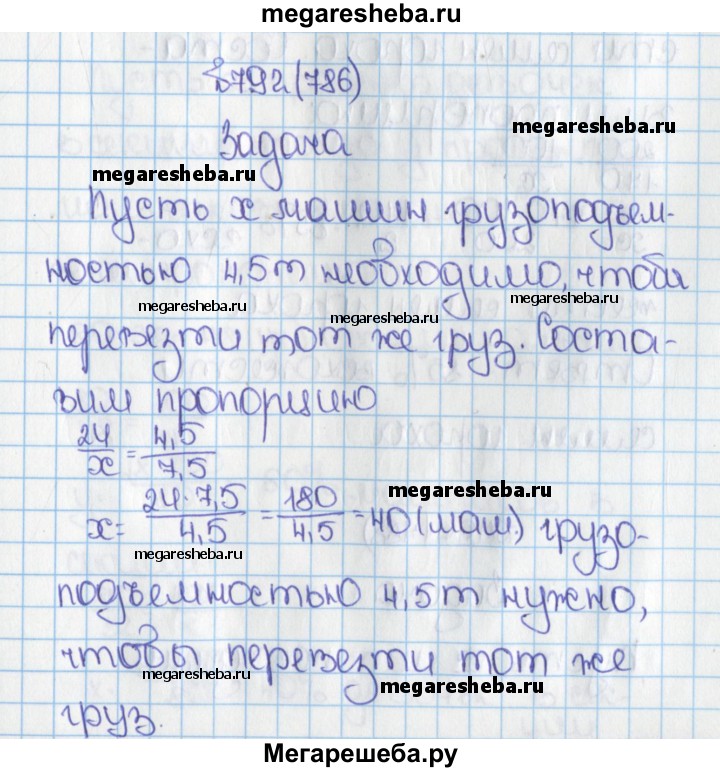 megaresheba.ru
№792(786)
megaresheba.ru
Задача
megaresheba.ru
Пусть x машин грузоподъем-
ностью 4,5т необходимо, чтобы
megaresheba.ru megaresheba.ru
перевезти тот же груз. Соста-
вим пропорцию
24/x = 4,5/7,5
megaresheba.ru
x = 24·7,5/4,5 = 180/4,5 = 40 (маш.) грузо-
megaresheba.ru
подъемностью 4,5т нужно,
чтобы перевезти тот же
megaresheba.ru megaresheba.ru
груз.
Мегарешеба.ру